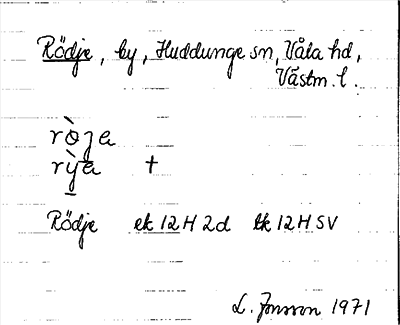 Rödje, by, Huddunge sn, Våla hd,
Västm. l.
ròʒa
rỳʒa †
Rödje ek 12 H 2d tk 12 H SV
L. Jonsson 1971